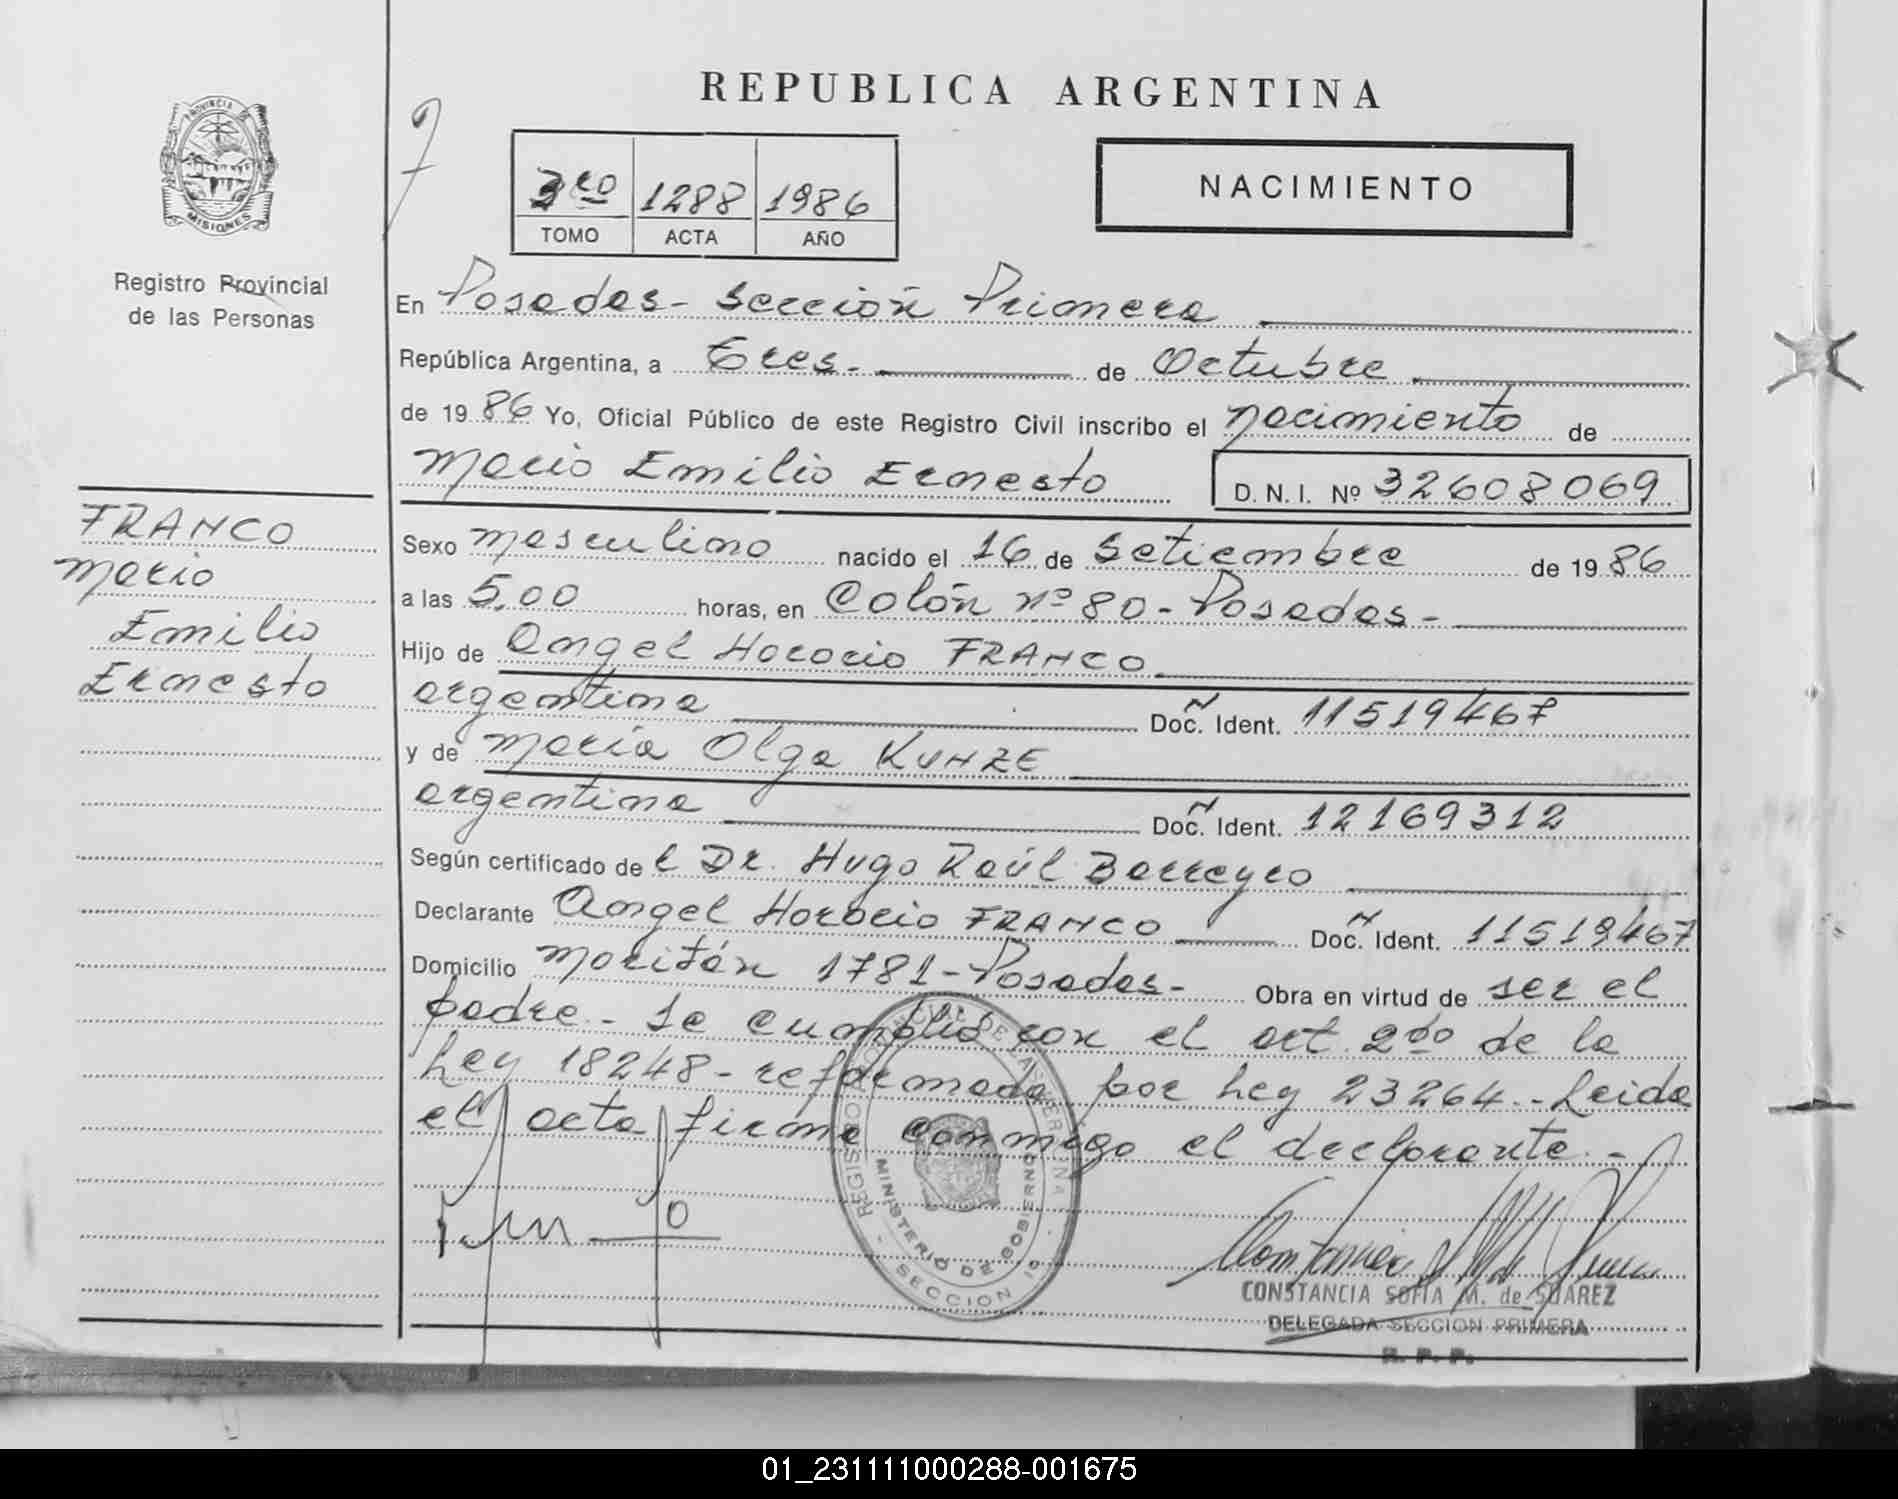 REPUBLICA ARGENTINA
PROVINCIA DE
MISIONES
Registro Provincial
de las Personas
3ro 1288 1986
TOMO ACTA AÑO
NACIMIENTO
En Posadas - Sección Primera
República Argentina, a Tres. de Octubre
de 1986 Yo, Oficial Público de este Registro Civil inscribo el nacimiento de
Mario Emilio Ernesto D. N. I. Nº 32608069
FRANCO
Mario
Emilio
Ernesto
Sexo masculino nacido el 16 de Setiembre de 1986
a las 5,00 horas, en Colón nº 80 - Posadas -
Hijo de Angel Horacio FRANCO
argentina Doc. Ident. 11519467
y de María Olga KUNZE
argentina Doc. Ident. 12169312
Según certificado de l Dr. Hugo Raúl Barreyro
Declarante Angel Horacio FRANCO Doc. Ident. 11519467
Domicilio 1781 - Posadas - Obra en virtud de ser el
padre. - Se cumplió con el art. 2do de la
Ley 18248 - reformada por Ley 23264. - Leida
el acta firma conmigo el declarante. -
REGISTRO PROVINCIAL DE LAS PERSONAS
MINISTERIO DE GOBIERNO
SECCION 1
CONSTANCIA SOFIA M. de SUAREZ
DELEGADA SECCION PRIMERA
R. P. P.
01_231111000288-001675